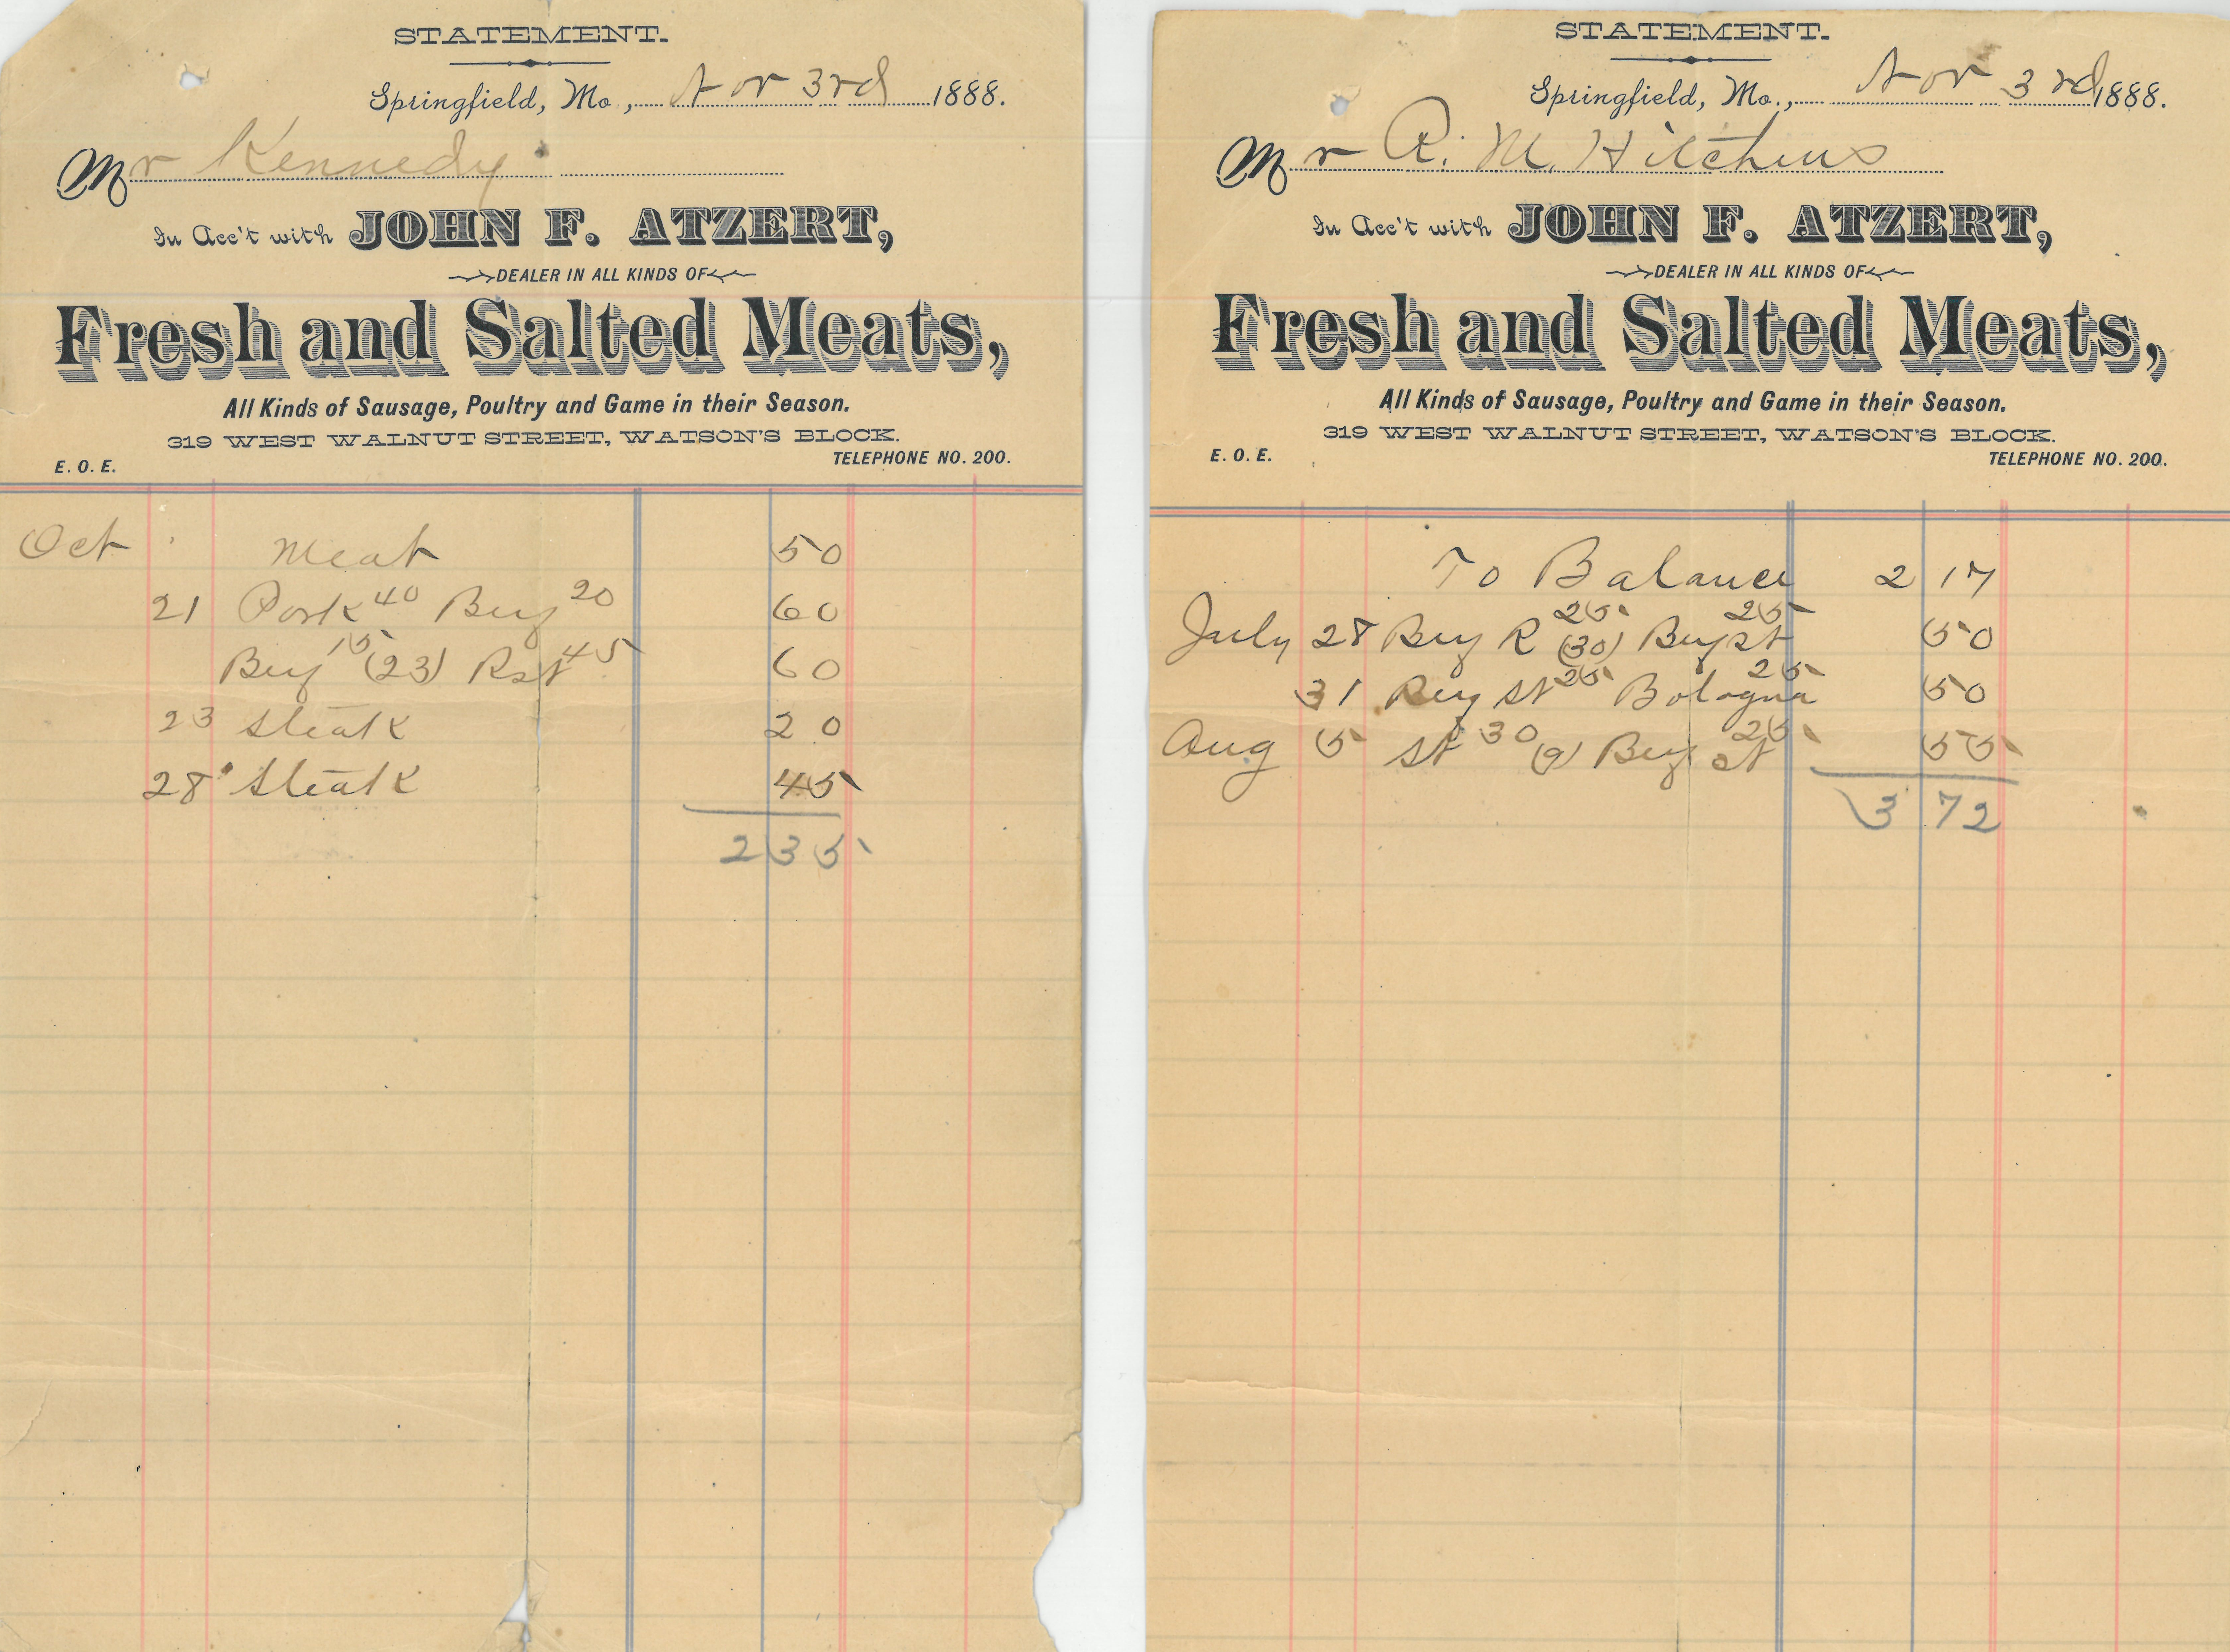 STATEMENT.
Springfield, Mo., Nov 3rd 1888.
Mr Kennedy
In Acc't with JOHN F. ATZERT,
DEALER IN ALL KINDS OF
Fresh and Salted Meats,
All Kinds of Sausage, Poultry and Game in their Season.
319 WEST WALNUT STREET, WATSON'S BLOCK.
E. O. E. TELEPHONE NO. 200.
Oct Meat 50
21 Pork 40 20 60
15 (23) Rst 45 60
23 Steak 20
28 Steak 45
2 35
STATEMENT.
Springfield, Mo., Nov 3rd 1888.
Mr R. M. Hitchens
In Acc't with JOHN F. ATZERT,
DEALER IN ALL KINDS OF
Fresh and Salted Meats,
All Kinds of Sausage, Poultry and Game in their Season.
319 WEST WALNUT STREET, WATSON'S BLOCK.
E. O. E. TELEPHONE NO. 200.
To Balance 2 17
July 28 R 25 (30) st 25 50
31 st 25 Bologna 25 50
Aug 5 st 30 (9) st 25 55
3 72